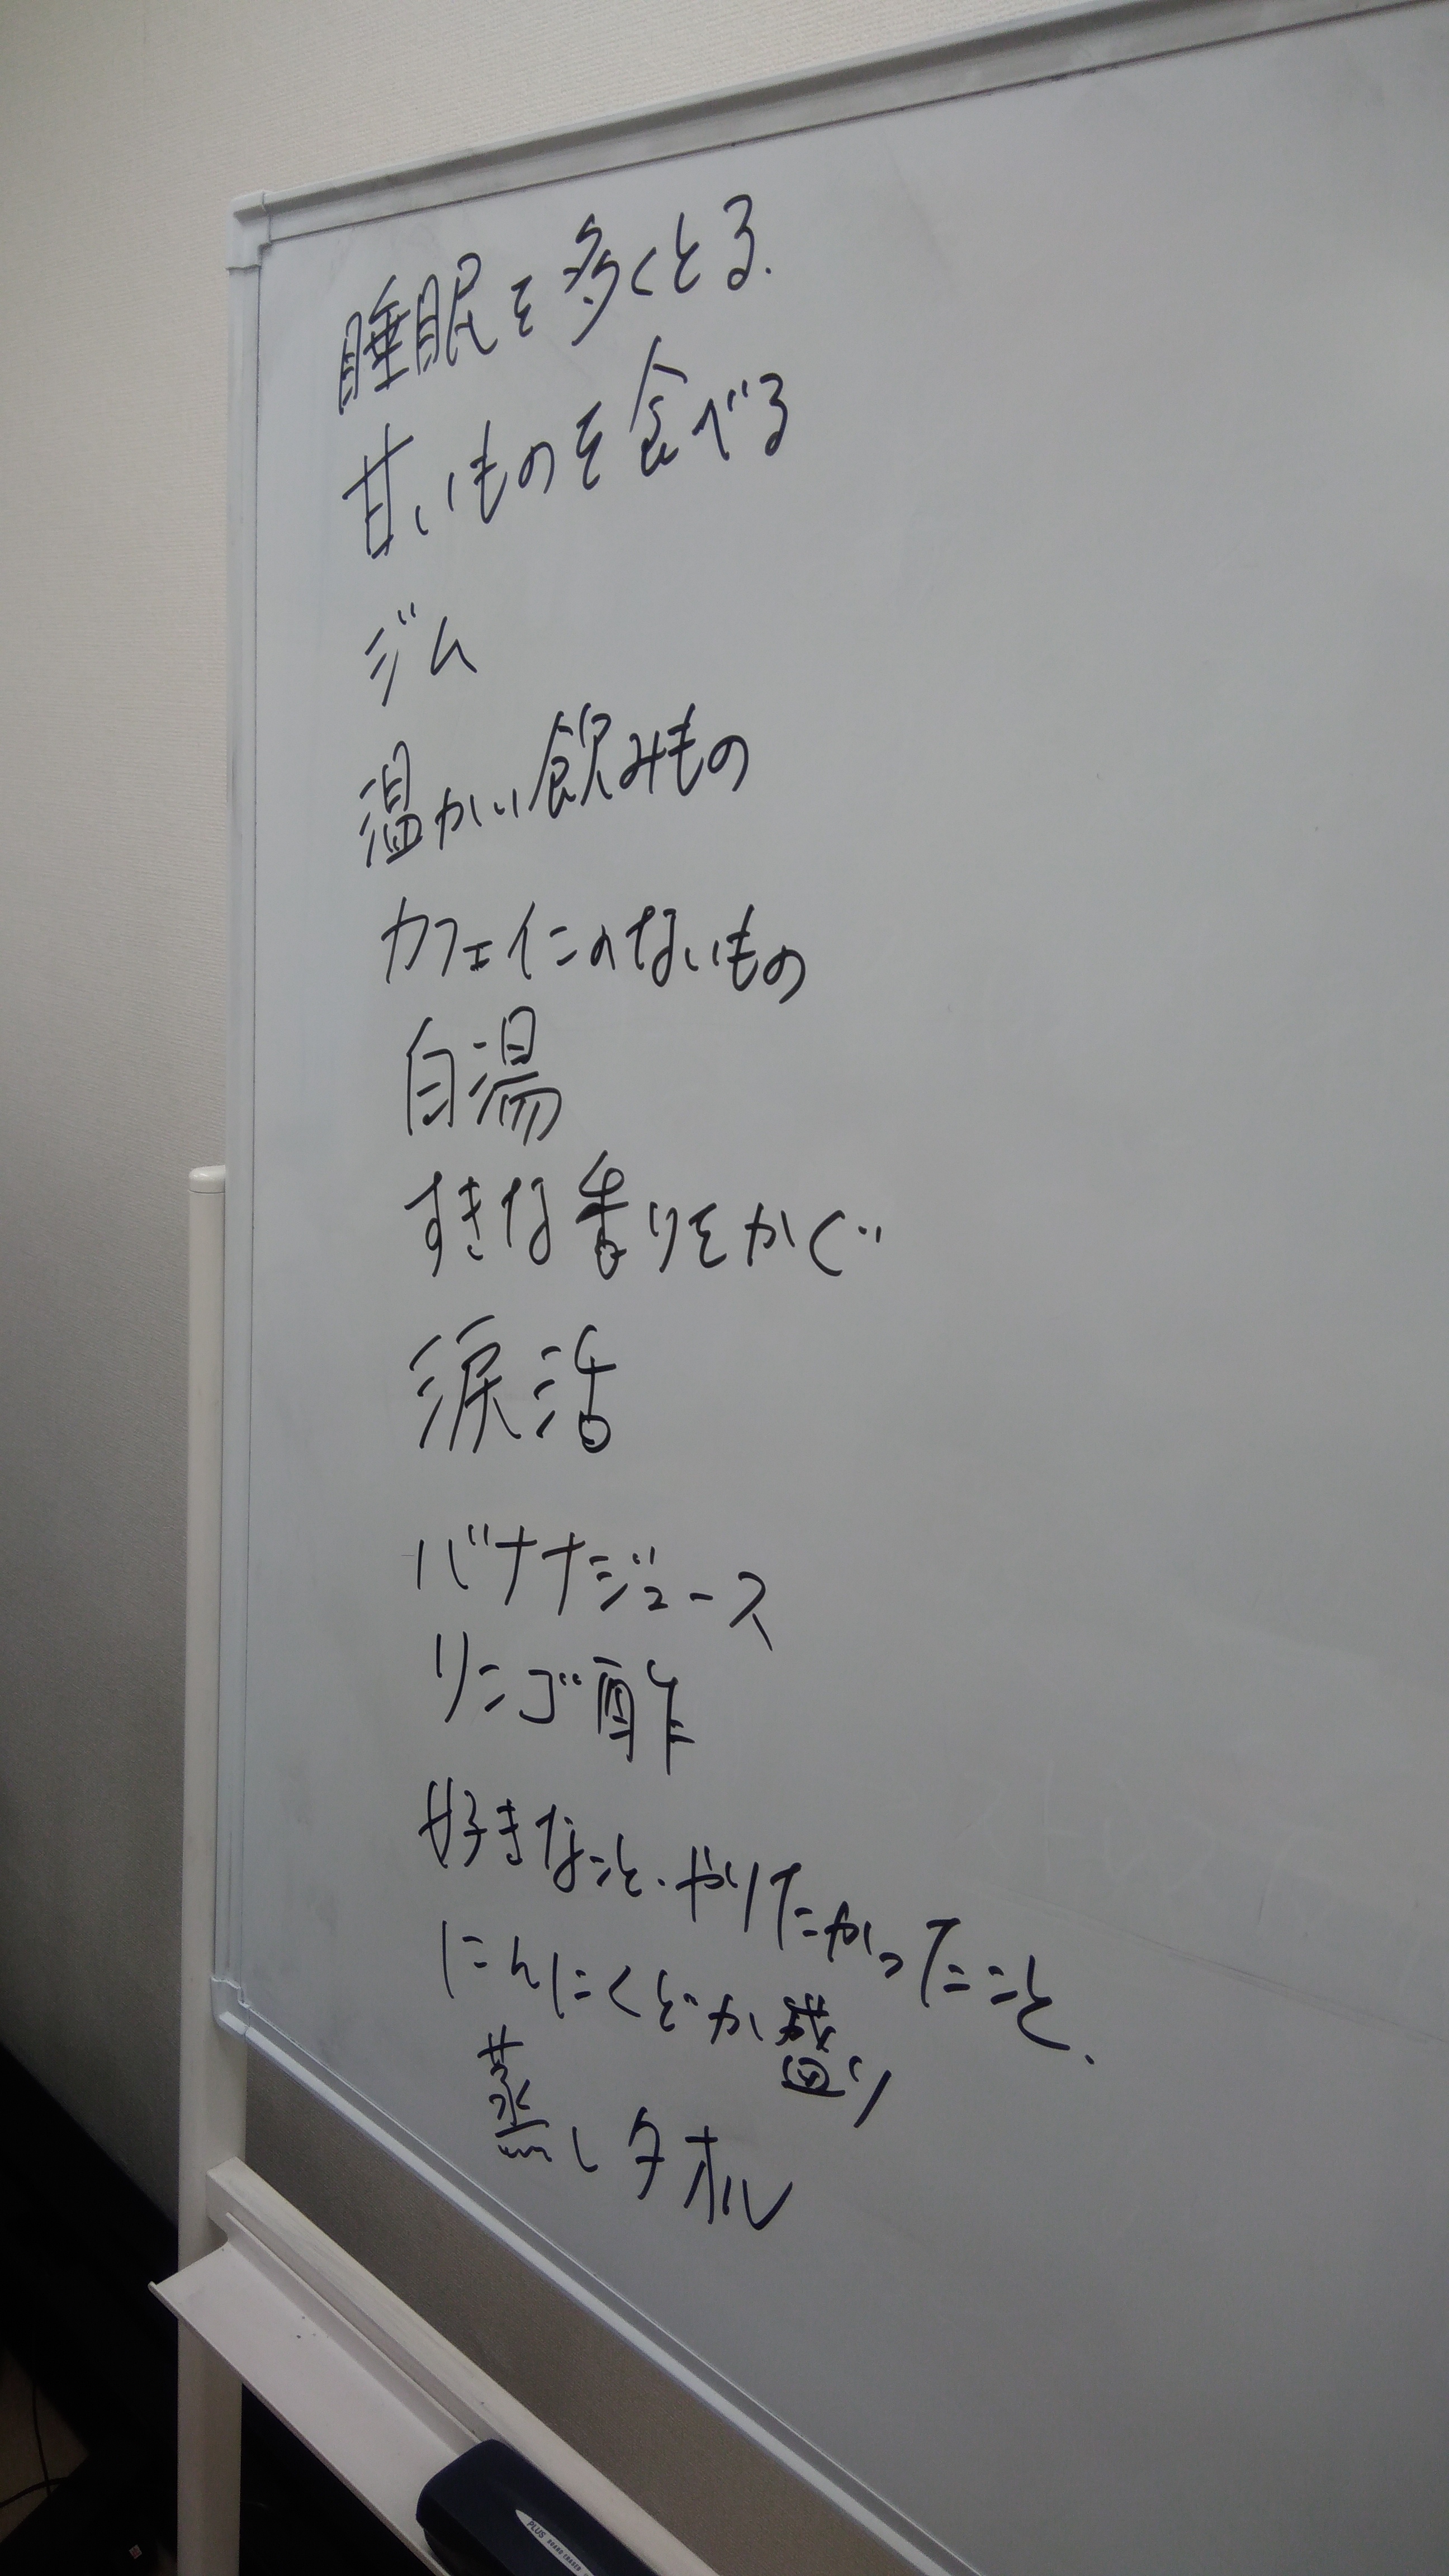 睡眠を多くとる.
甘いものを食べる
ジム
温かい飲みもの
カフェインのないもの
白湯
すきな香りをかぐ
涙活
バナナジュース
リンゴ酢
好きなこと.やりたかったこと.
にんにくどか盛り
蒸しタオル
PLUS